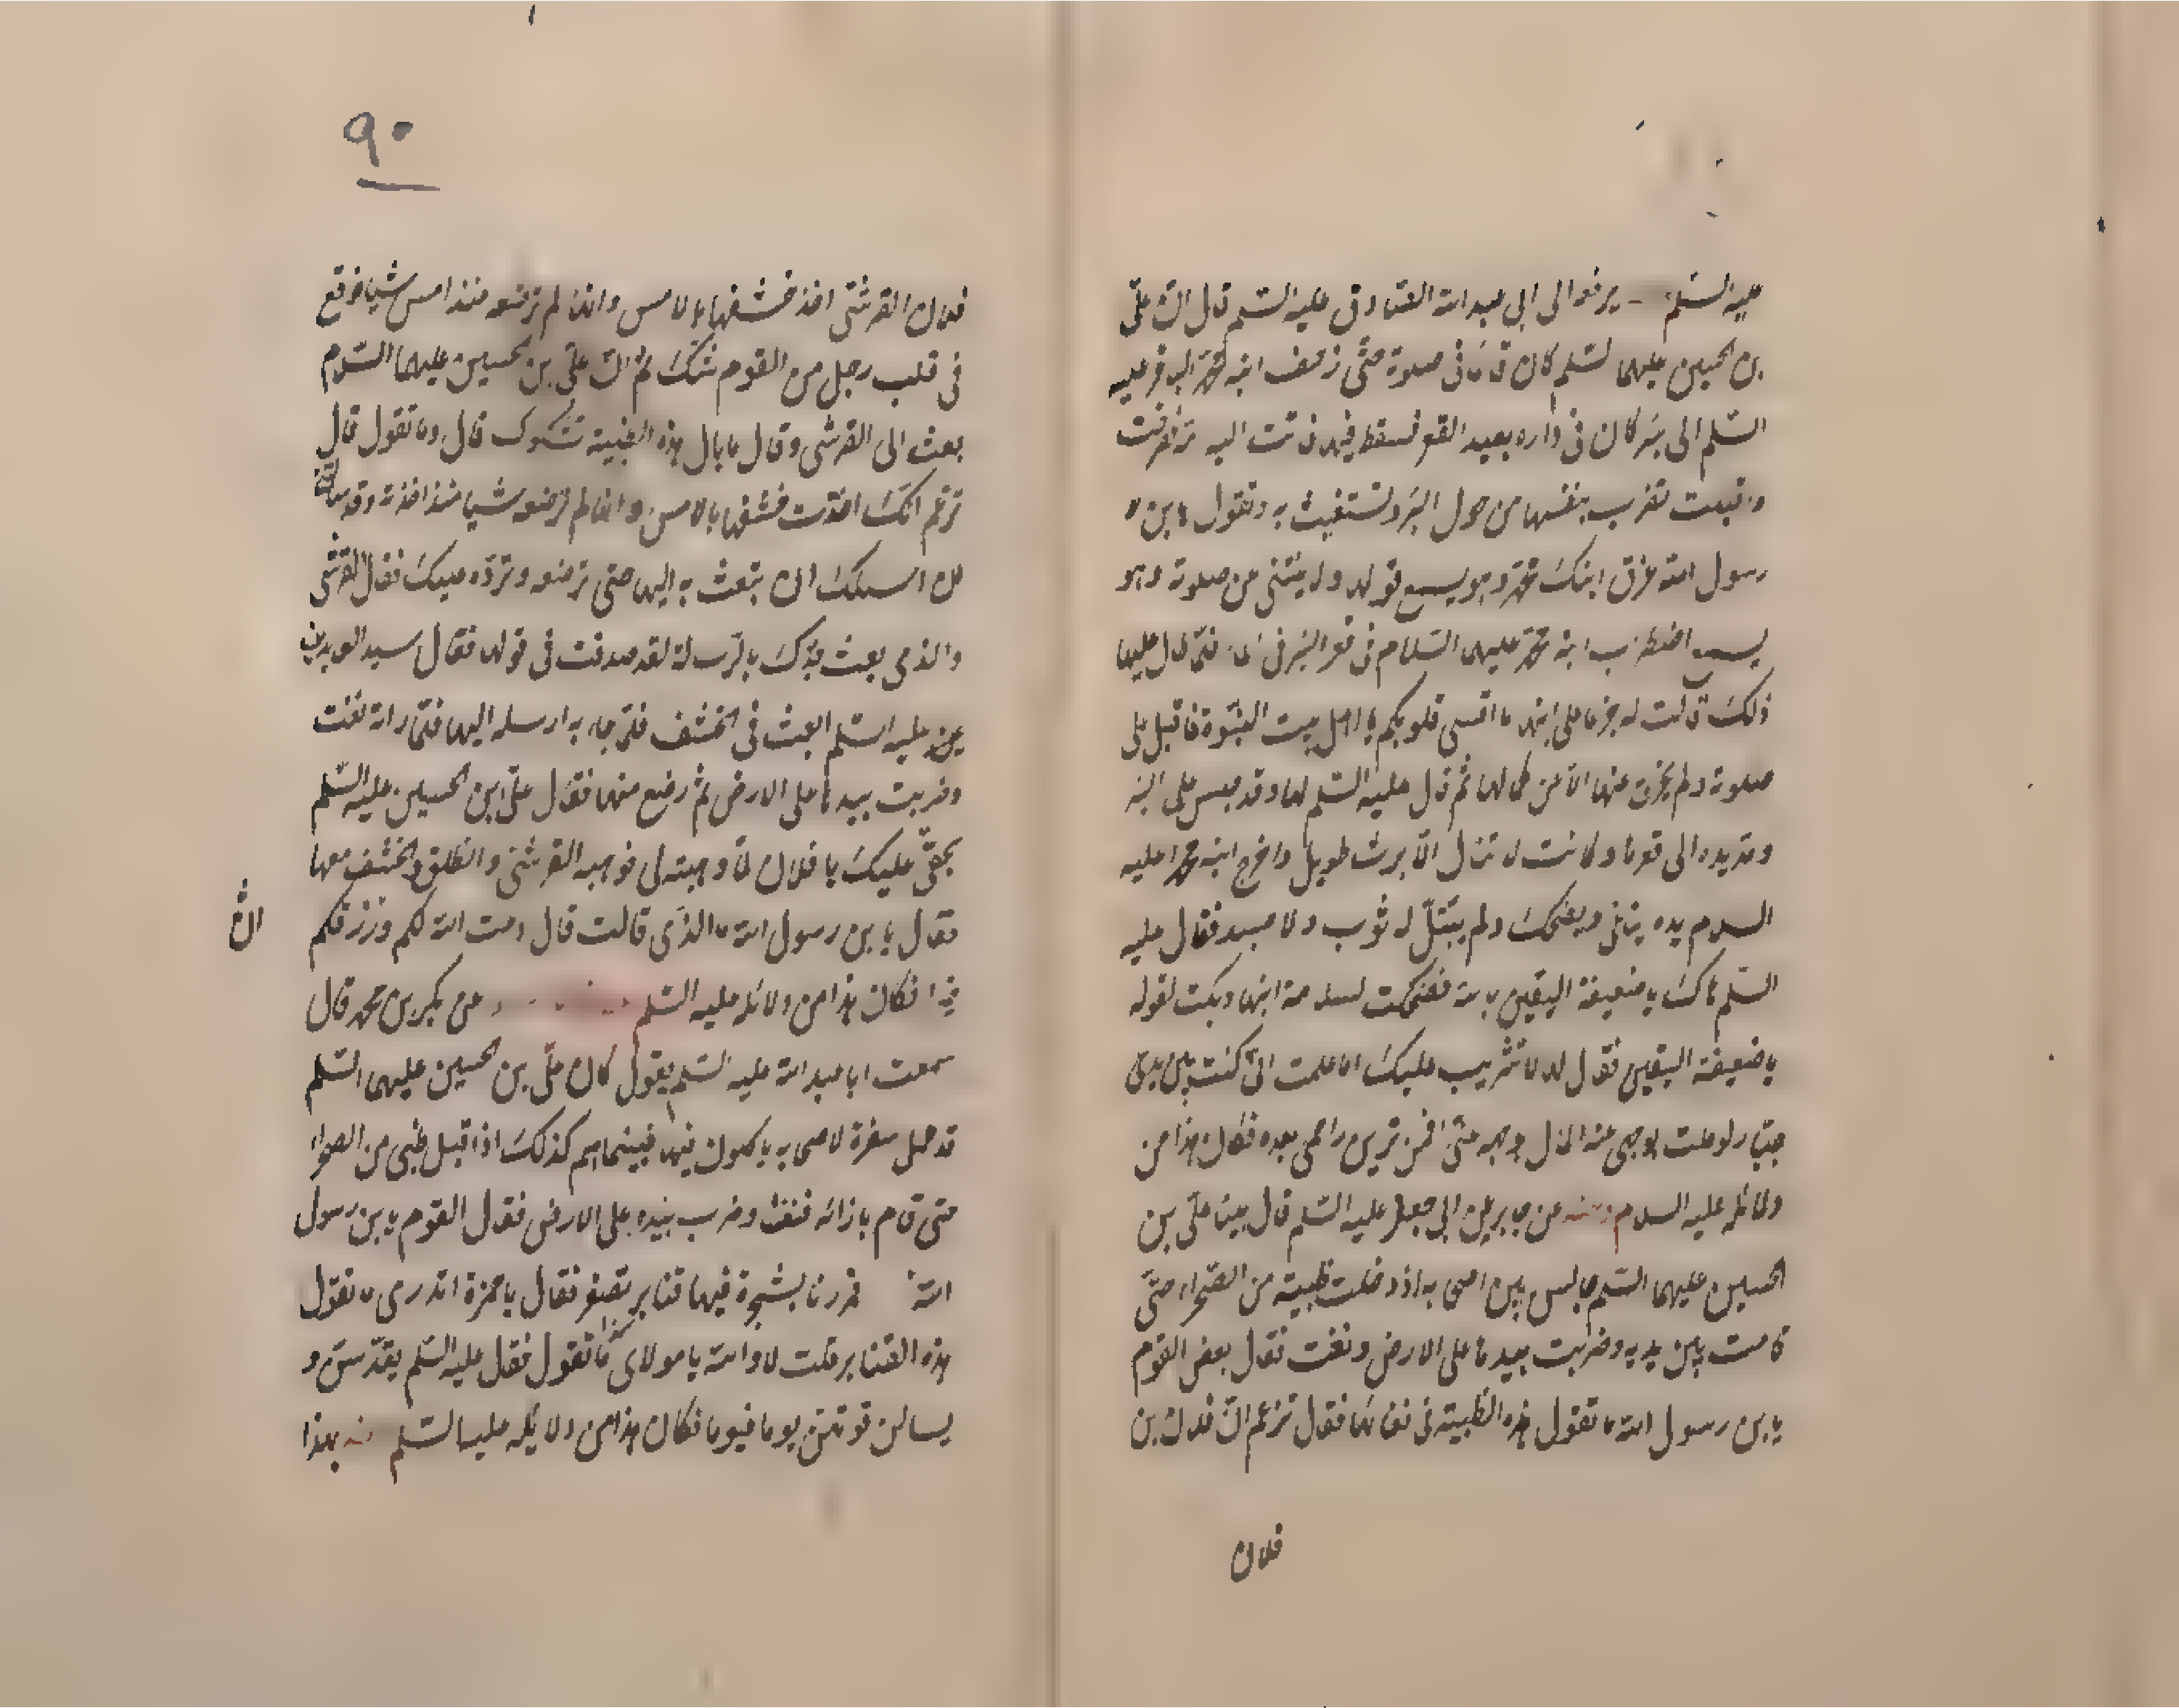 عليه السّلم يرفعه الى ابى عبد الله الصّادق عليه السّلم قال انّ علىّ
بن الحسين عليهما السّلم كان قائما فى صلوته حتّى زحف ابنه محمّد الباقر عليه
السّلم الى بئر كان فى داره بعيد القعر فسقط فيها فاتت اليه فنظرت
واقبلت تضرب بنفسها من حول البئر وتستغيث به وتقول يابن
رسول الله غرق ابنك محمّد وهو يسمع قولها ولا ينثنى من صلوته وهو
يسمع اضطراب ابنه محمّد عليهما السّلام فى قعر البئر فى الماء فلمّا طال عليها
ذلك قالت له جزعا على ابنها ما اقسى قلوبكم يا اهل بيت النبوّة فاقبل على
صلوته ولم يخرج عنها الّا عن كمالها ثم قال عليه السّلم لها وقد جلس على البئر
ومدّ يده الى قعرها وكانت لا تنال الّا برشا طويل واخرج ابنه محمّدا عليه
السلام بيده يناغى ويضحك ولم يبتلّ له ثوب ولا جسد فقال عليه
السّلم هاك يا ضعيفة اليقين بالله فضحكت لسلامة ابنها وبكت لقوله
يا ضعيفة اليقين فقال لها لا تثريب عليك اما علمت انّى كنت بين يدى
جبّار لو ملت بوجهى عنه لمال بوجهه عنّى افمن ترين راحمى بعده فكان هذا من
دلائله عليه السلام وعنه عن جابر عن ابى جعفر عليه السّلم قال بينا علىّ بن
الحسين عليهما السّلم جالس بين اصحابه اذ دخلت ظبية من الصّحراء حتّى
قامت بين يديه وضربت بيدها على الارض ونغت فقال بعض القوم
يابن رسول الله ما تقول هذه الظبية فى نغائها فقال تزعم انّ فلان بن
فلان
٩٠
فلان القرشىّ اخذ خشفها بالامس وانّها لم ترضعه منذ امس شيئا فوقع
فى قلب رجل من القوم شكّ ثم انّ علىّ بن الحسين عليهما السّلام
بعث الى القرشى وقال ما بال هذه الظبية تشكوك قال وما تقول قال
تزعم انّك اخذت خشفها بالامس وانّها لم ترضعه شيئا منذ اخذته وقد سالتنى
ان اسئلك ان تبعث به اليها حتى ترضعه وتردّه عليك فقال القرشى
والذى بعث جدّك بالرّسالة لقد صدقت فى قولها فقال سيد العابدين
عليه السّلم ابعث فى الخشف فلمّا جاء به ارسله اليها فلمّا راته نغت
وضربت بيدها على الارض ثم رضع منها فقال علىّ بن الحسين عليه السّلم
بحقّى عليك يا فلان لمّا وهبته لى فوهبه القرشىّ وانطلق الخشف معها
فقال يابن رسول الله ما الذى قالت قال دعت الله لكم وزرقكم
فكان هذا من دلائله عليه السّلم عن بكر بن محمّد قال
سمعت ابا عبد الله عليه السّلم يقول كان علىّ بن الحسين عليهما السّلم
قد حمل سفرة لاصحابه ياكلون فيها فبينما هم كذلك اذ اقبل ظبى من الصحراء
حتى قام بازائه فنغى وضرب بيده على الارض فقال القوم يابن رسول
الله فمررنا بشجرة فيها قنابر تصفر فقال يا حمزة اتدرى ما تقول
هذه القنابر قلت لا والله يا مولاى ما تقول فقال عليه السّلم يقدّسن و
يسالن قوتهنّ يوما فيوما فكان هذا من دلائله عليه السّلم عنه بهذا